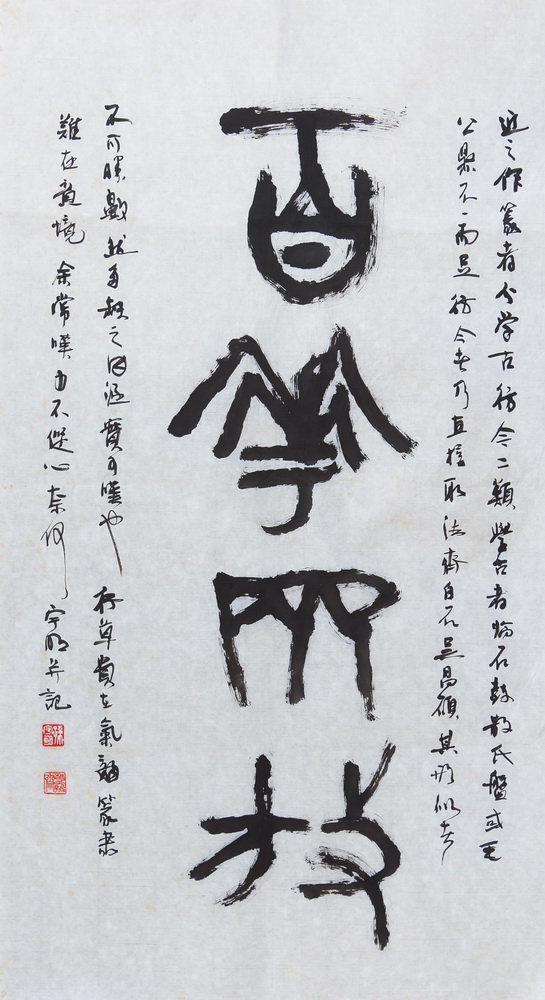 近之作篆者分学古仿今二類學古者臨石鼓散氏盤或毛
公鼎不一而足仿今者乃直接取法齊白石吳昌碩其形似者
百華齊放
不可勝數 之 實可嘆也 草貴在氣韻篆隸
難在意境 余常嘆力不從心奈何 宇明并記